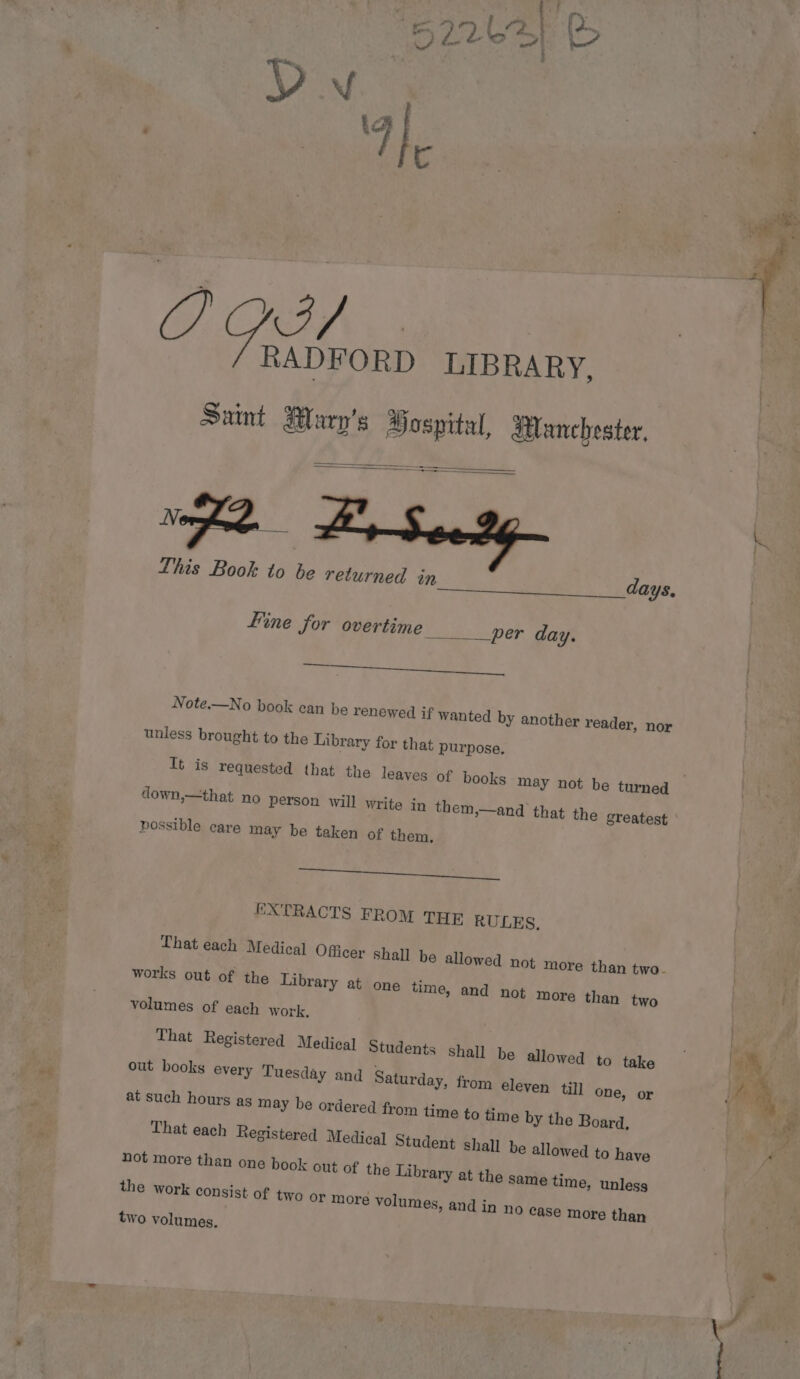 52263| B
D.V
O G31
RADFORD LIBRARY,
Saint Mary's Hospital, Manchester.
No 72 F, Sec 24
This Book to be returned in ______ days.
Fine for overtime ______ per day.
Note.—No book can be renewed if wanted by another reader, nor
unless brought to the Library for that purpose.
It is requested that the leaves of books may not be turned
down,—that no person will write in them,—and that the greatest
possible care may be taken of them.
EXTRACTS FROM THE RULES.
That each Medical Officer shall be allowed not more than two
works out of the Library at one time, and not more than two
volumes of each work.
That Registered Medical Students shall be allowed to take
out books every Tuesday and Saturday, from eleven till one, or
at such hours as may be ordered from time to time by the Board.
That each Registered Medical Student shall be allowed to have
not more than one book out of the Library at the same time, unless
the work consist of two or more volumes, and in no case more than
two volumes.